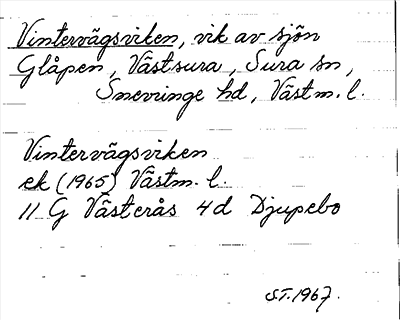 Vintervägsviken, vik av sjön
Glåpen, Västsura, Sura sn,
Snevringe hd, Västm. l.
Vintervägsviken
ek (1965) Västm. l.
11 G Västerås 4d Djupebo
S.T. 1967.